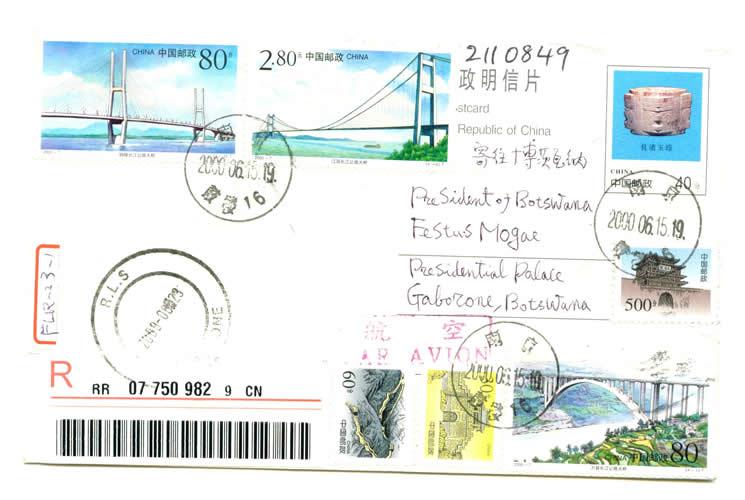 中国邮政
CHINA
80分
2.80元
中国邮政 CHINA
2110849
政明信片
ostcard
Republic of China
寄往博茨瓦纳
PreSident of Botswana
Festus Mogae
Presidential Palace
Gaborone, Botswana
CHINA
中国邮政
40分
南京
2000.06.15.19.
2000.06.15.19.
16
中国邮政
500分
FLR-23-1
R.L.S
航空
PAR AVION
南京
2000.06.15.19.
16
R
RR 07 750 982 9 CN
60分
中国邮政
中国邮政
CHINA 中国邮政
80分